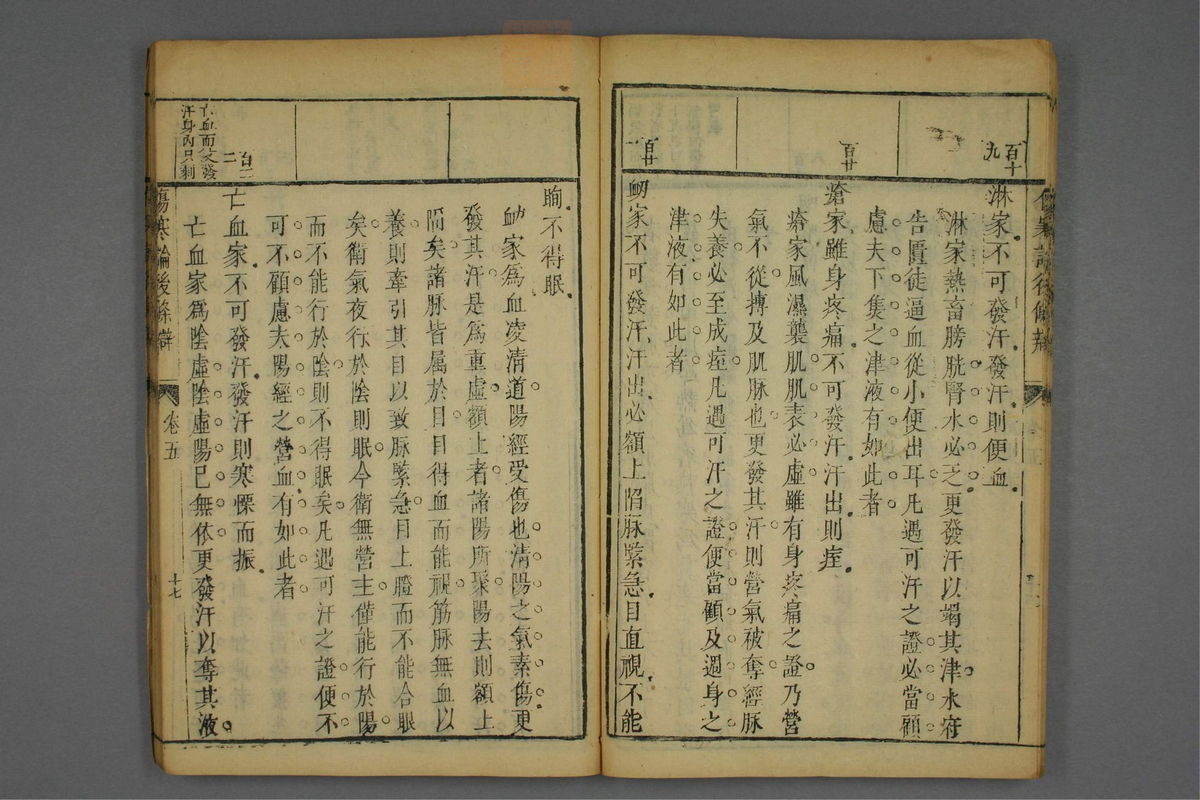 百十九
淋家不可發汗發汗則便血
淋家熱畜膀胱腎水必乏更發汗以竭其津水府
告匱徒逼血從小便出耳凡遇可汗之證必當顧
慮夫下焦之津液有如此者
百廿
瘡家雖身疼痛不可發汗汗出則痓
瘡家風濕襲肌肌表必虛雖有身疼痛之證乃營
氣不從搏及肌脉也更發其汗則營氣被奪經脉
失養必至成痓凡遇可汗之證便當顧及週身之
津液有如此者
百廿一
衂家不可發汗汗出必額上陷脉緊急目直視不能
眴不得眠
衂家為血凌清道陽經受傷也清陽之氣素傷更
發其汗是為重虛額上者諸陽所聚陽去則額上
陷矣諸脉皆属於目目得血而能視筋脉無血以
養則牽引其目以致脉緊急目上瞪而不能合眼
矣衛氣夜行於陰則眠今衛無營主僅能行於陽
而不能行於陰則不得眠矣凡遇可汗之證便不
可不顧慮夫陽經之營血有如此者
百二二
亡血家不可發汗發汗則寒慄而振
亡血而又發
汗身內只剩
亡血家為陰虛陰虛陽已無依更發汗以奪其液
傷寒論後條辯
卷五
十七